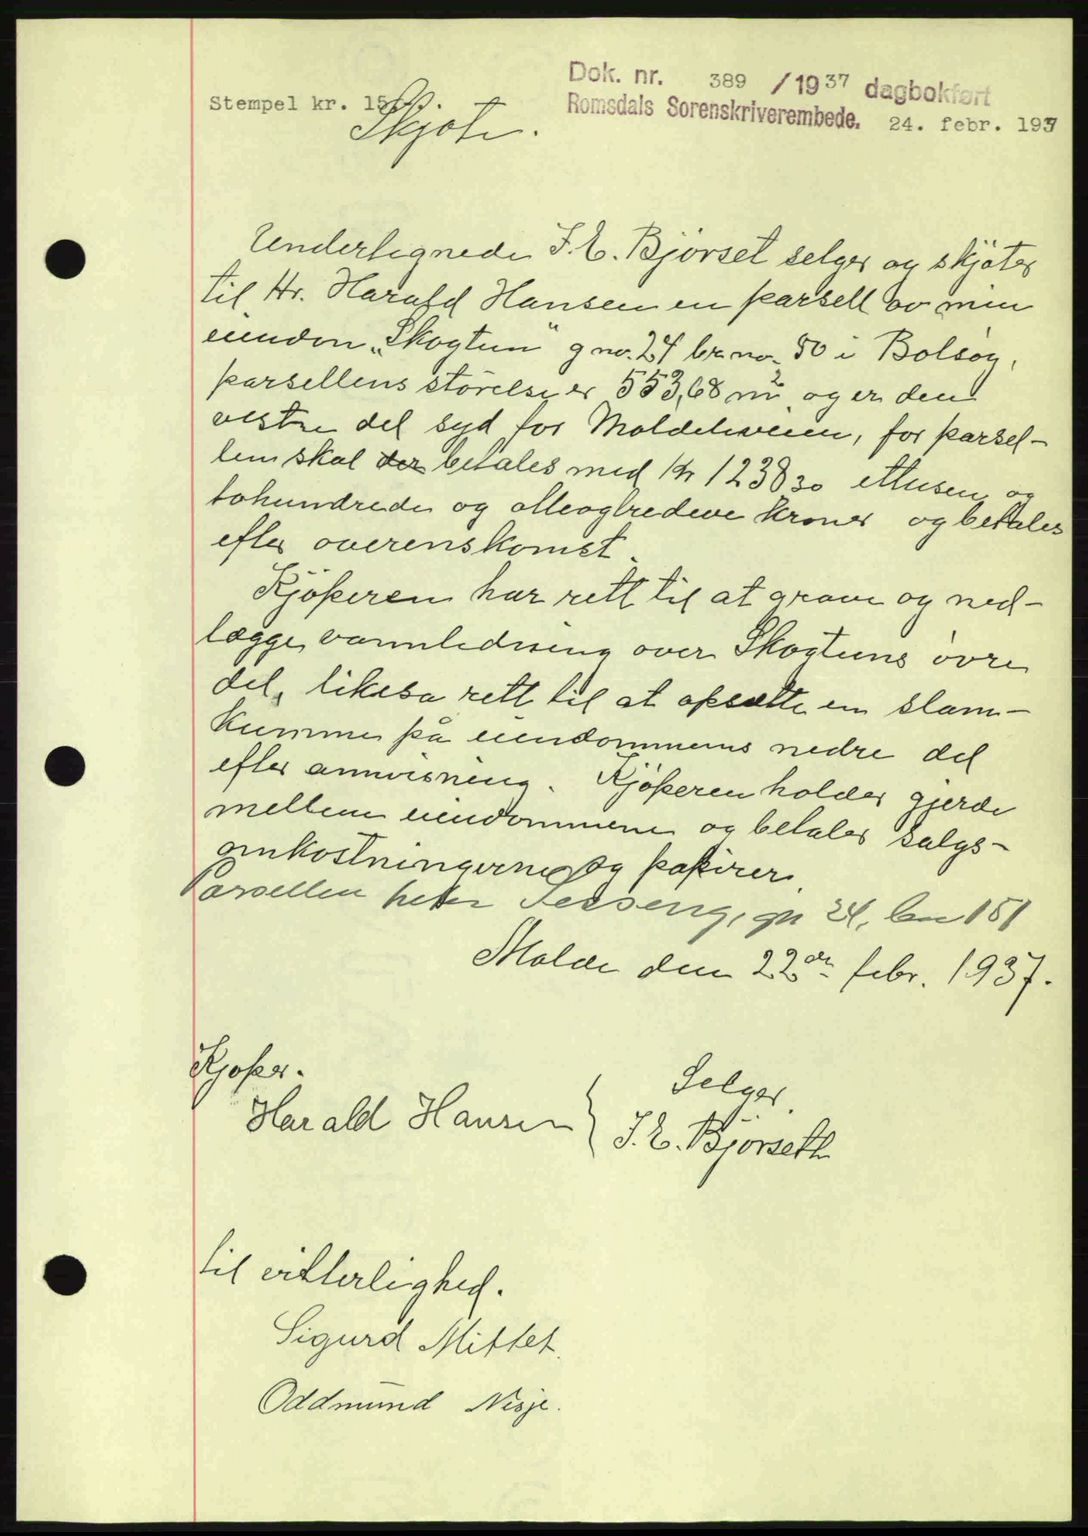 Dok. nr. 389 / 1937 dagbokført
Stempel kr. 15
Romsdals Sorenskriverembede. 24. febr. 1937
Skjøte.
Undertegnede J. E. Bjørset selger og skjøter
til Hr. Harald Hansen en parsell av min
eiendon „Skogtun" g no. 24 br. no. 50 i Bolsøy,
parsellens størelse er 553,68 m2 og er den
vestre del syd for Moldeliveien, for parsel-
len skal der betales med Kr 1238 30 ettusen og
tohundrede og otteogtredeve kroner og betales
efter overenskomst.
Kjöperen har rett til at grave og ned-
lægge vannledning over Skogtuns övre
del, likesa rett til at opsætte en slam-
kumme på eiendommens nedre del
efter anvisning. Kjöperen holder gjerde
mellem eiendommene og betaler salgs-
omkostningerne og papirer.
Parsellen heter gn 24, bn 151
Molde den 22de febr. 1937.
Kjøper.
Selger.
Harald Hansen
J. E. Bjørseth
til vitterlighed.
Sigurd Mittet.
Oddmund Nisje.